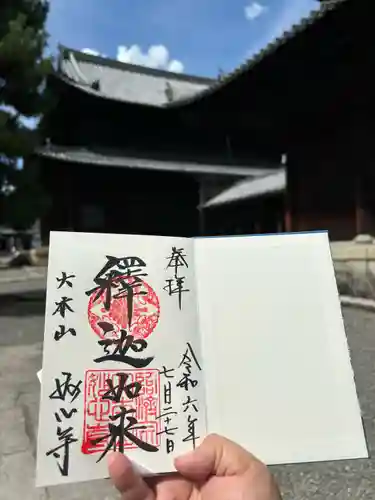 奉拝
令和六年
七月二十七日
釋迦如来
大本山
妙心寺